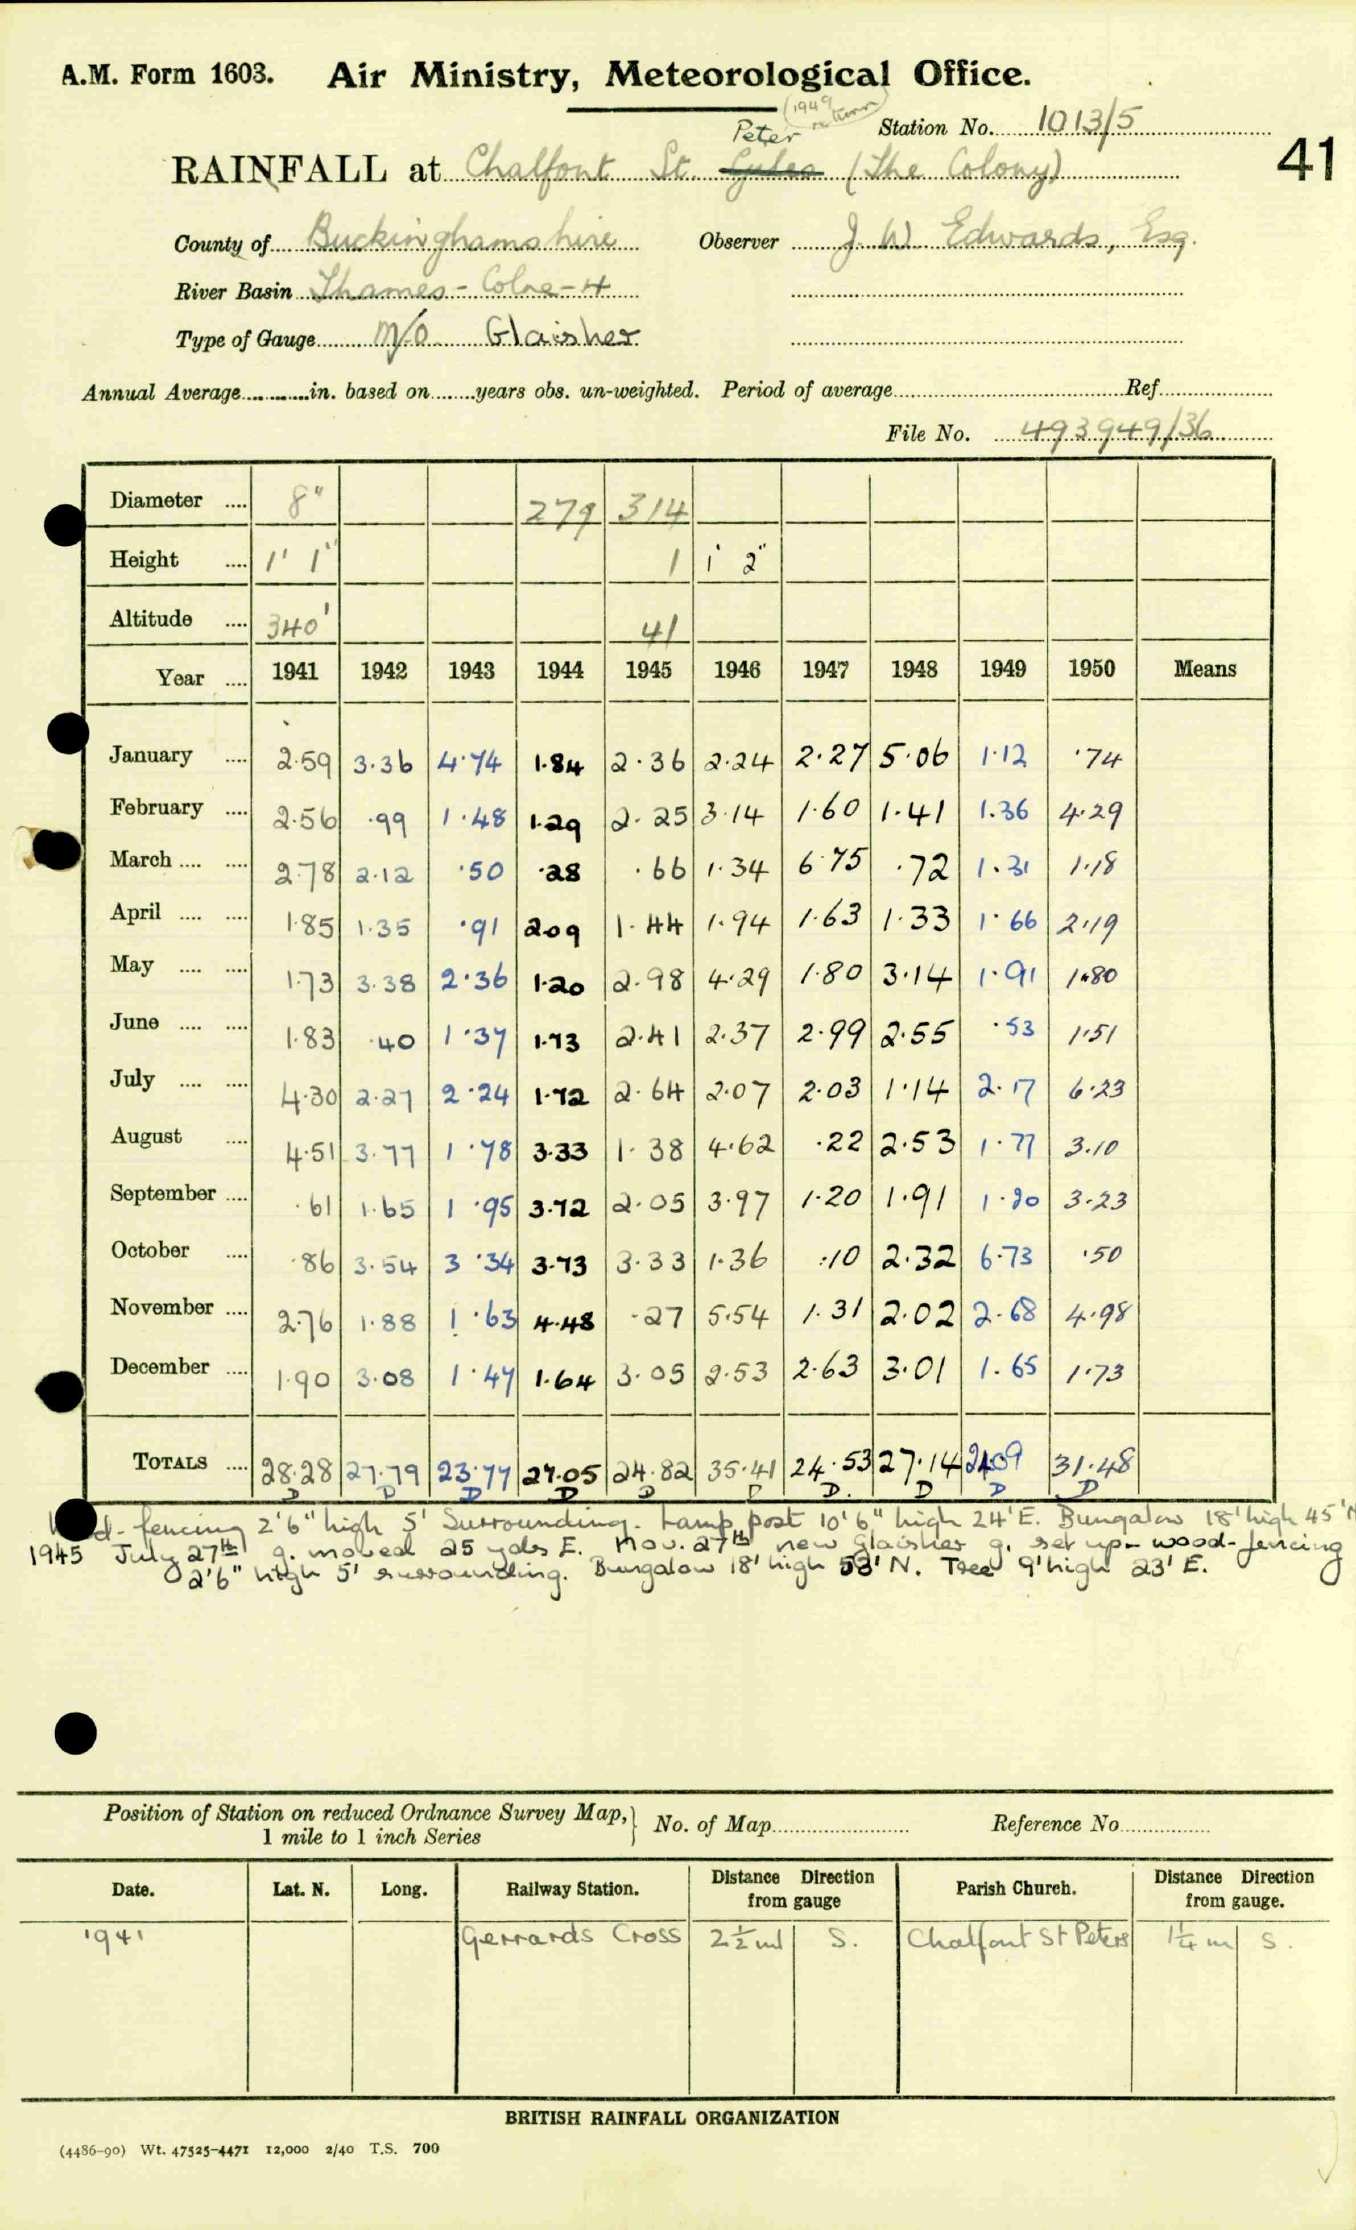 A.M. Form 1603. Air Ministry, Meteorological Office.
(1949 return)
Station No. 1013/5
Peter
41
RAINFALL at Chalfont St. Gyles (The Colony)
County of Buckinghamshire Observer J. W. Edwards, Esq.
River Basin Thames - Colne - 4
Type of Gauge M/O Glaisher
Annual Average in. based on years obs. un-weighted. Period of average Ref
File No. 493949/36
Diameter 8" 279 314
Height 1' 1" 1 1' 2"
Altitude 340' 41
Year 1941 1942 1943 1944 1945 1946 1947 1948 1949 1950 Means
January 2.59 3.36 4.74 1.84 2.36 2.24 2.27 5.06 1.12 .74
February 2.56 .99 1.48 1.29 2.25 3.14 1.60 1.41 1.36 4.29
March 2.78 2.12 .50 .28 .66 1.34 6.75 .72 1.31 1.18
April 1.85 1.35 .91 2.09 1.44 1.94 1.63 1.33 1.66 2.19
May 1.73 3.38 2.36 1.20 2.98 4.29 1.80 3.14 1.91 1.80
June 1.83 .40 1.37 1.73 2.41 2.37 2.99 2.55 .53 1.51
July 4.30 2.27 2.24 1.72 2.64 2.07 2.03 1.14 2.17 6.23
August 4.51 3.77 1.78 3.33 1.38 4.62 .22 2.53 1.77 3.10
September .61 1.65 1.95 3.72 2.05 3.97 1.20 1.91 1.20 3.23
October .86 3.54 3.34 3.73 3.33 1.36 .10 2.32 6.73 .50
November 2.76 1.88 1.63 4.48 .27 5.54 1.31 2.02 2.68 4.98
December 1.90 3.08 1.47 1.64 3.05 2.53 2.63 3.01 1.65 1.73
TOTALS 28.28 27.79 23.77 27.05 24.82 35.41 24.53 27.14 24.09 31.48
D D D D D D D. D D D
fencing 2'6" high 5' Surrounding. Lamp post 10'6" high 24'E. Bungalow 18' high 45'N
1945 July 27th g. moved 25 yds E. Nov. 27th new Glaisher g. set up - wood-fencing
2'6" high 5' surrounding. Bungalow 18' high 53' N. Tree 9' high 23' E.
Position of Station on reduced Ordnance Survey Map, 1 mile to 1 inch Series No. of Map Reference No
Date. Lat. N. Long. Railway Station. Distance Direction from gauge Parish Church. Distance Direction from gauge.
1941 Gerrards Cross 2½ ml S. Chalfont St Peters 1¼ m S.
BRITISH RAINFALL ORGANIZATION
(4486-90) Wt. 47525-4471 12,000 2/40 T.S. 700